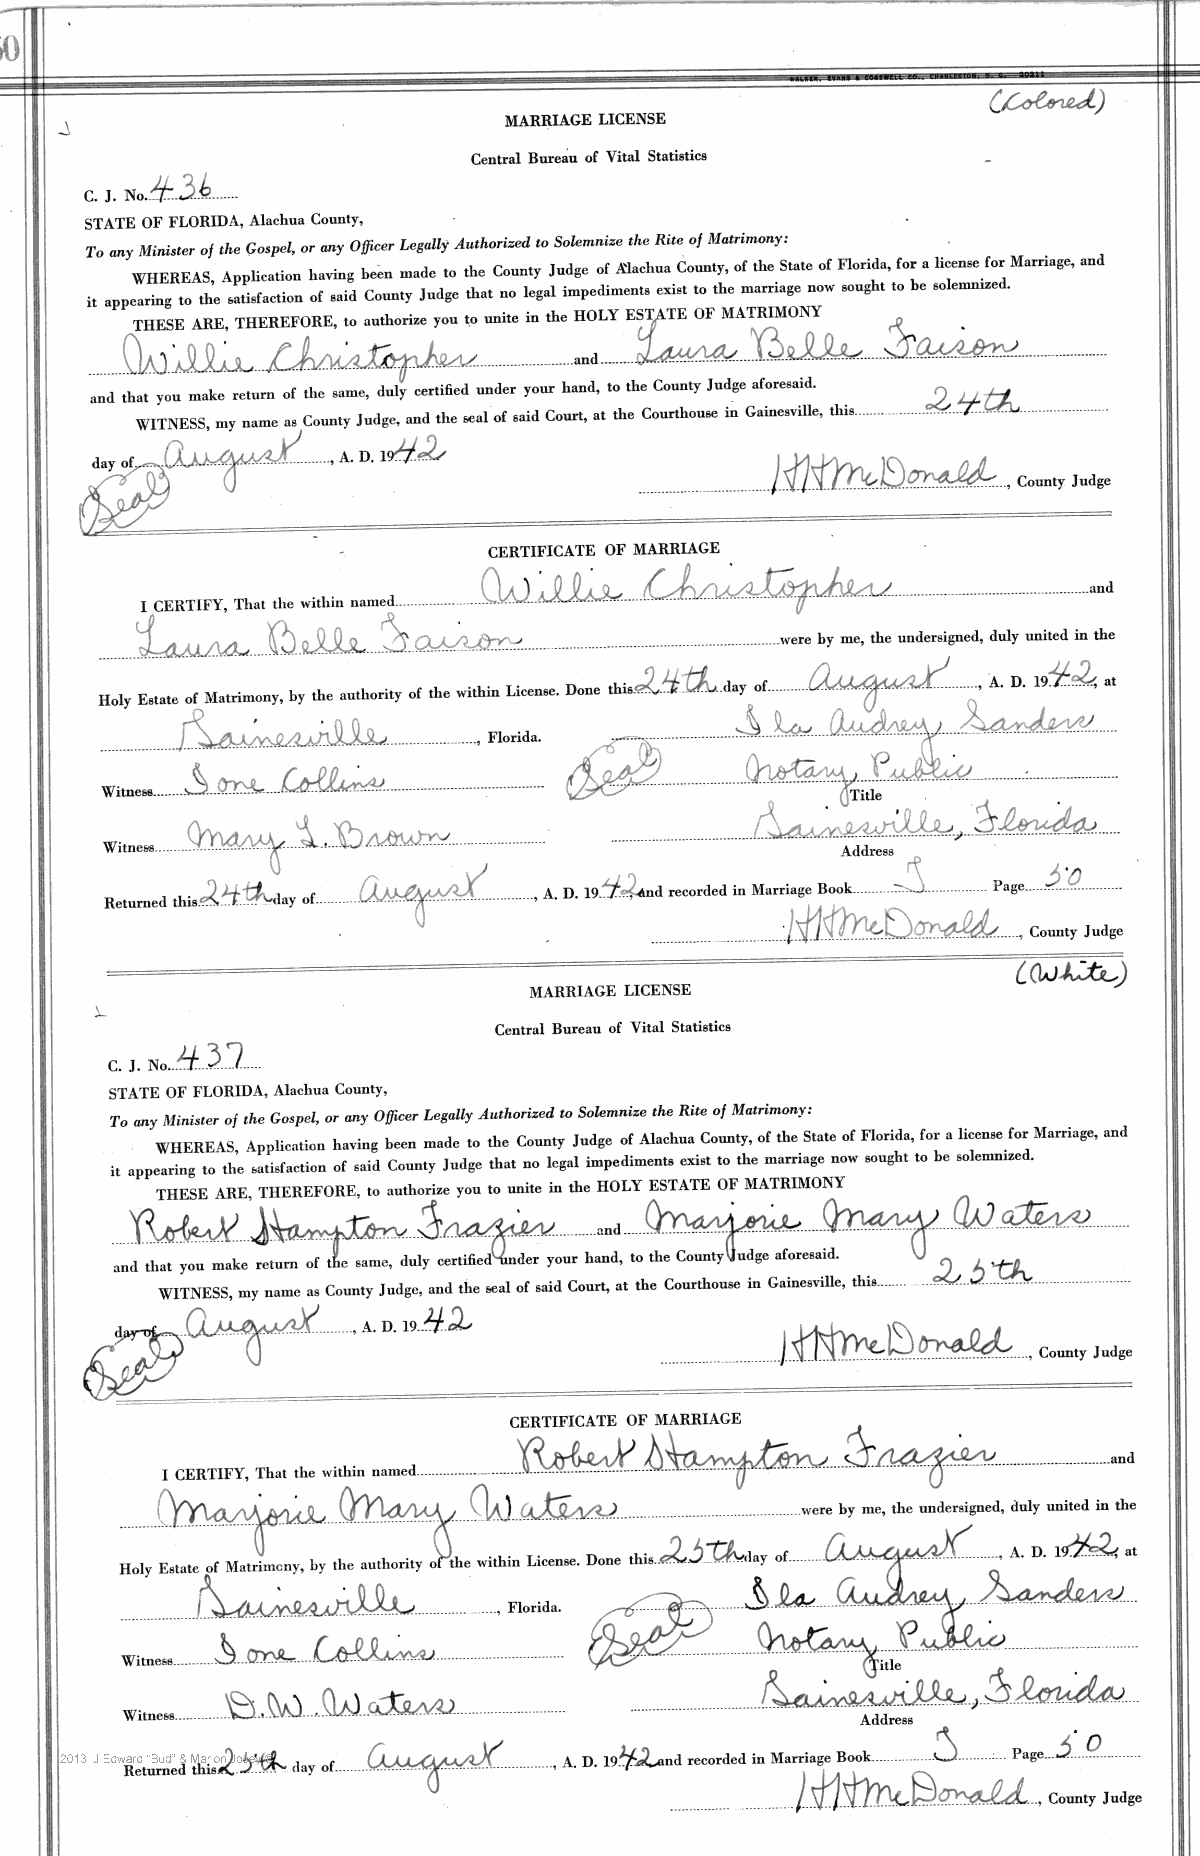 50
WALKER, EVANS & COGSWELL CO., CHARLESTON, S. C. 20211
(Colored)
MARRIAGE LICENSE
Central Bureau of Vital Statistics
C. J. No. 436
STATE OF FLORIDA, Alachua County,
To any Minister of the Gospel, or any Officer Legally Authorized to Solemnize the Rite of Matrimony:
WHEREAS, Application having been made to the County Judge of Alachua County, of the State of Florida, for a license for Marriage, and
it appearing to the satisfaction of said County Judge that no legal impediments exist to the marriage now sought to be solemnized.
THESE ARE, THEREFORE, to authorize you to unite in the HOLY ESTATE OF MATRIMONY
Willie Christopher and Laura Belle Faison
and that you make return of the same, duly certified under your hand, to the County Judge aforesaid.
WITNESS, my name as County Judge, and the seal of said Court, at the Courthouse in Gainesville, this 24th
day of August, A. D. 1942
(Seal) HHMcDonald, County Judge
CERTIFICATE OF MARRIAGE
I CERTIFY, That the within named Willie Christopher and
Laura Belle Faison were by me, the undersigned, duly united in the
Holy Estate of Matrimony, by the authority of the within License. Done this 24th day of August, A. D. 1942, at
Gainesville, Florida. Ila Audrey Sanders
Witness Ione Collins (Seal) Notary Public
Title
Witness Mary L. Brown Gainesville, Florida
Address
Returned this 24th day of August, A. D. 1942 and recorded in Marriage Book J Page 50
HHMcDonald, County Judge
(White)
MARRIAGE LICENSE
Central Bureau of Vital Statistics
C. J. No. 437
STATE OF FLORIDA, Alachua County,
To any Minister of the Gospel, or any Officer Legally Authorized to Solemnize the Rite of Matrimony:
WHEREAS, Application having been made to the County Judge of Alachua County, of the State of Florida, for a license for Marriage, and
it appearing to the satisfaction of said County Judge that no legal impediments exist to the marriage now sought to be solemnized.
THESE ARE, THEREFORE, to authorize you to unite in the HOLY ESTATE OF MATRIMONY
Robert Hampton Frazier and Marjorie Mary Waters
and that you make return of the same, duly certified under your hand, to the County Judge aforesaid.
WITNESS, my name as County Judge, and the seal of said Court, at the Courthouse in Gainesville, this 25th
day of August, A. D. 1942
(Seal) HHMcDonald, County Judge
CERTIFICATE OF MARRIAGE
I CERTIFY, That the within named Robert Hampton Frazier and
Marjorie Mary Waters were by me, the undersigned, duly united in the
Holy Estate of Matrimony, by the authority of the within License. Done this 25th day of August, A. D. 1942, at
Gainesville, Florida. Ila Audrey Sanders
Witness Ione Collins (Seal) Notary Public
Title
Witness D.W. Waters Gainesville, Florida
Address
2013 J Edward "Bud" & Marion
Returned this 25th day of August, A. D. 1942 and recorded in Marriage Book J Page 50
HHMcDonald, County Judge